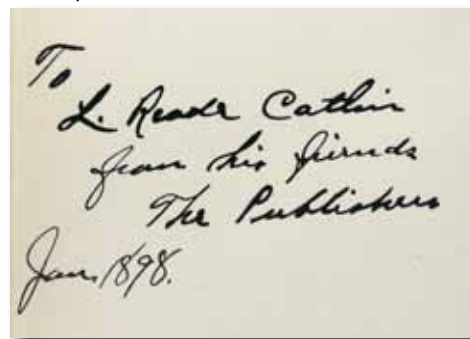 To
L. Reade Catlin
from his friends
The Publishers
Jan. 1898.